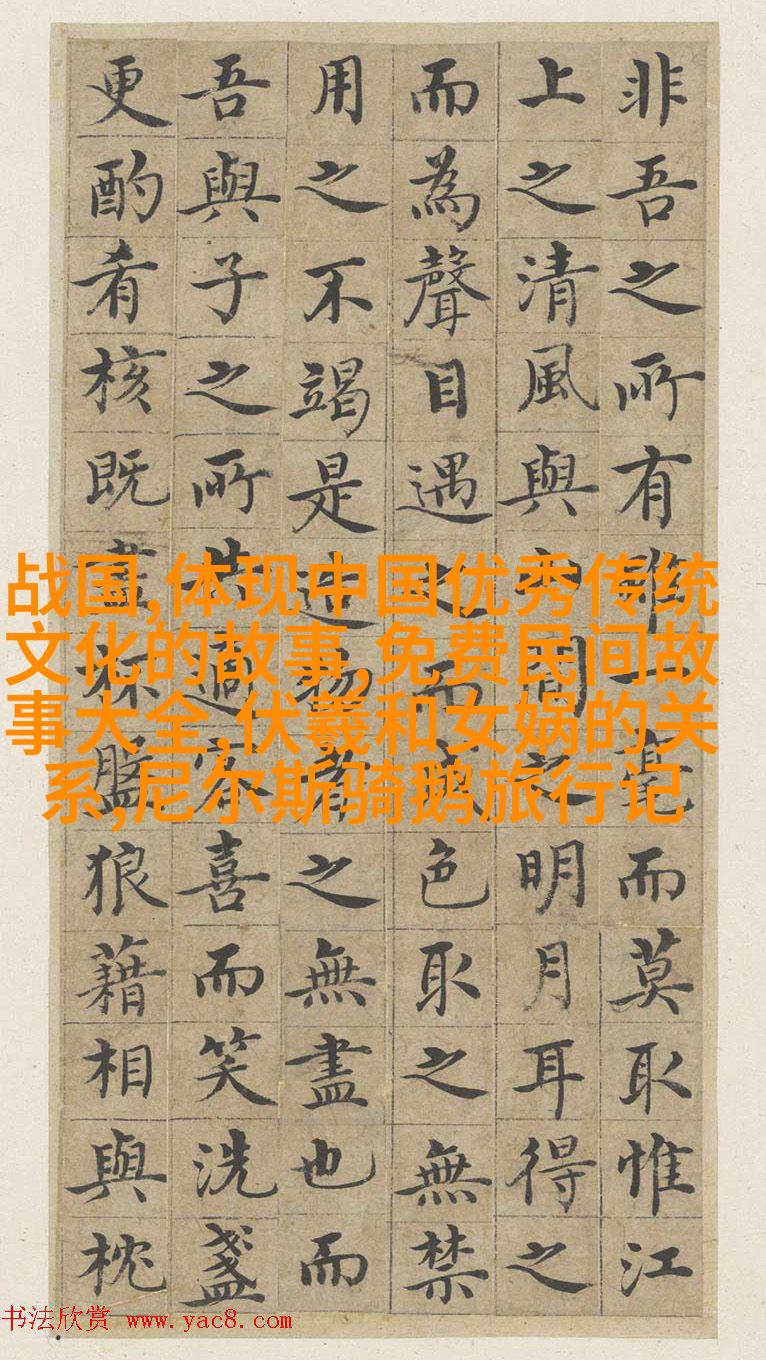 非吾之所有雖一毫而莫取惟江
上之清風與山間之明月耳得之
而為聲目遇之而成色取之無禁
用之不竭是造物者之無盡也而
吾與子之所共適客喜而笑洗盞
更酌肴核既盡杯盤狼藉相與枕
战国,体现中国优秀传统
文化的故事,免费民间故
事大全,伏羲和女娲的关
系,尼尔斯骑鹅旅行记
书法欣赏 www.yac8.com